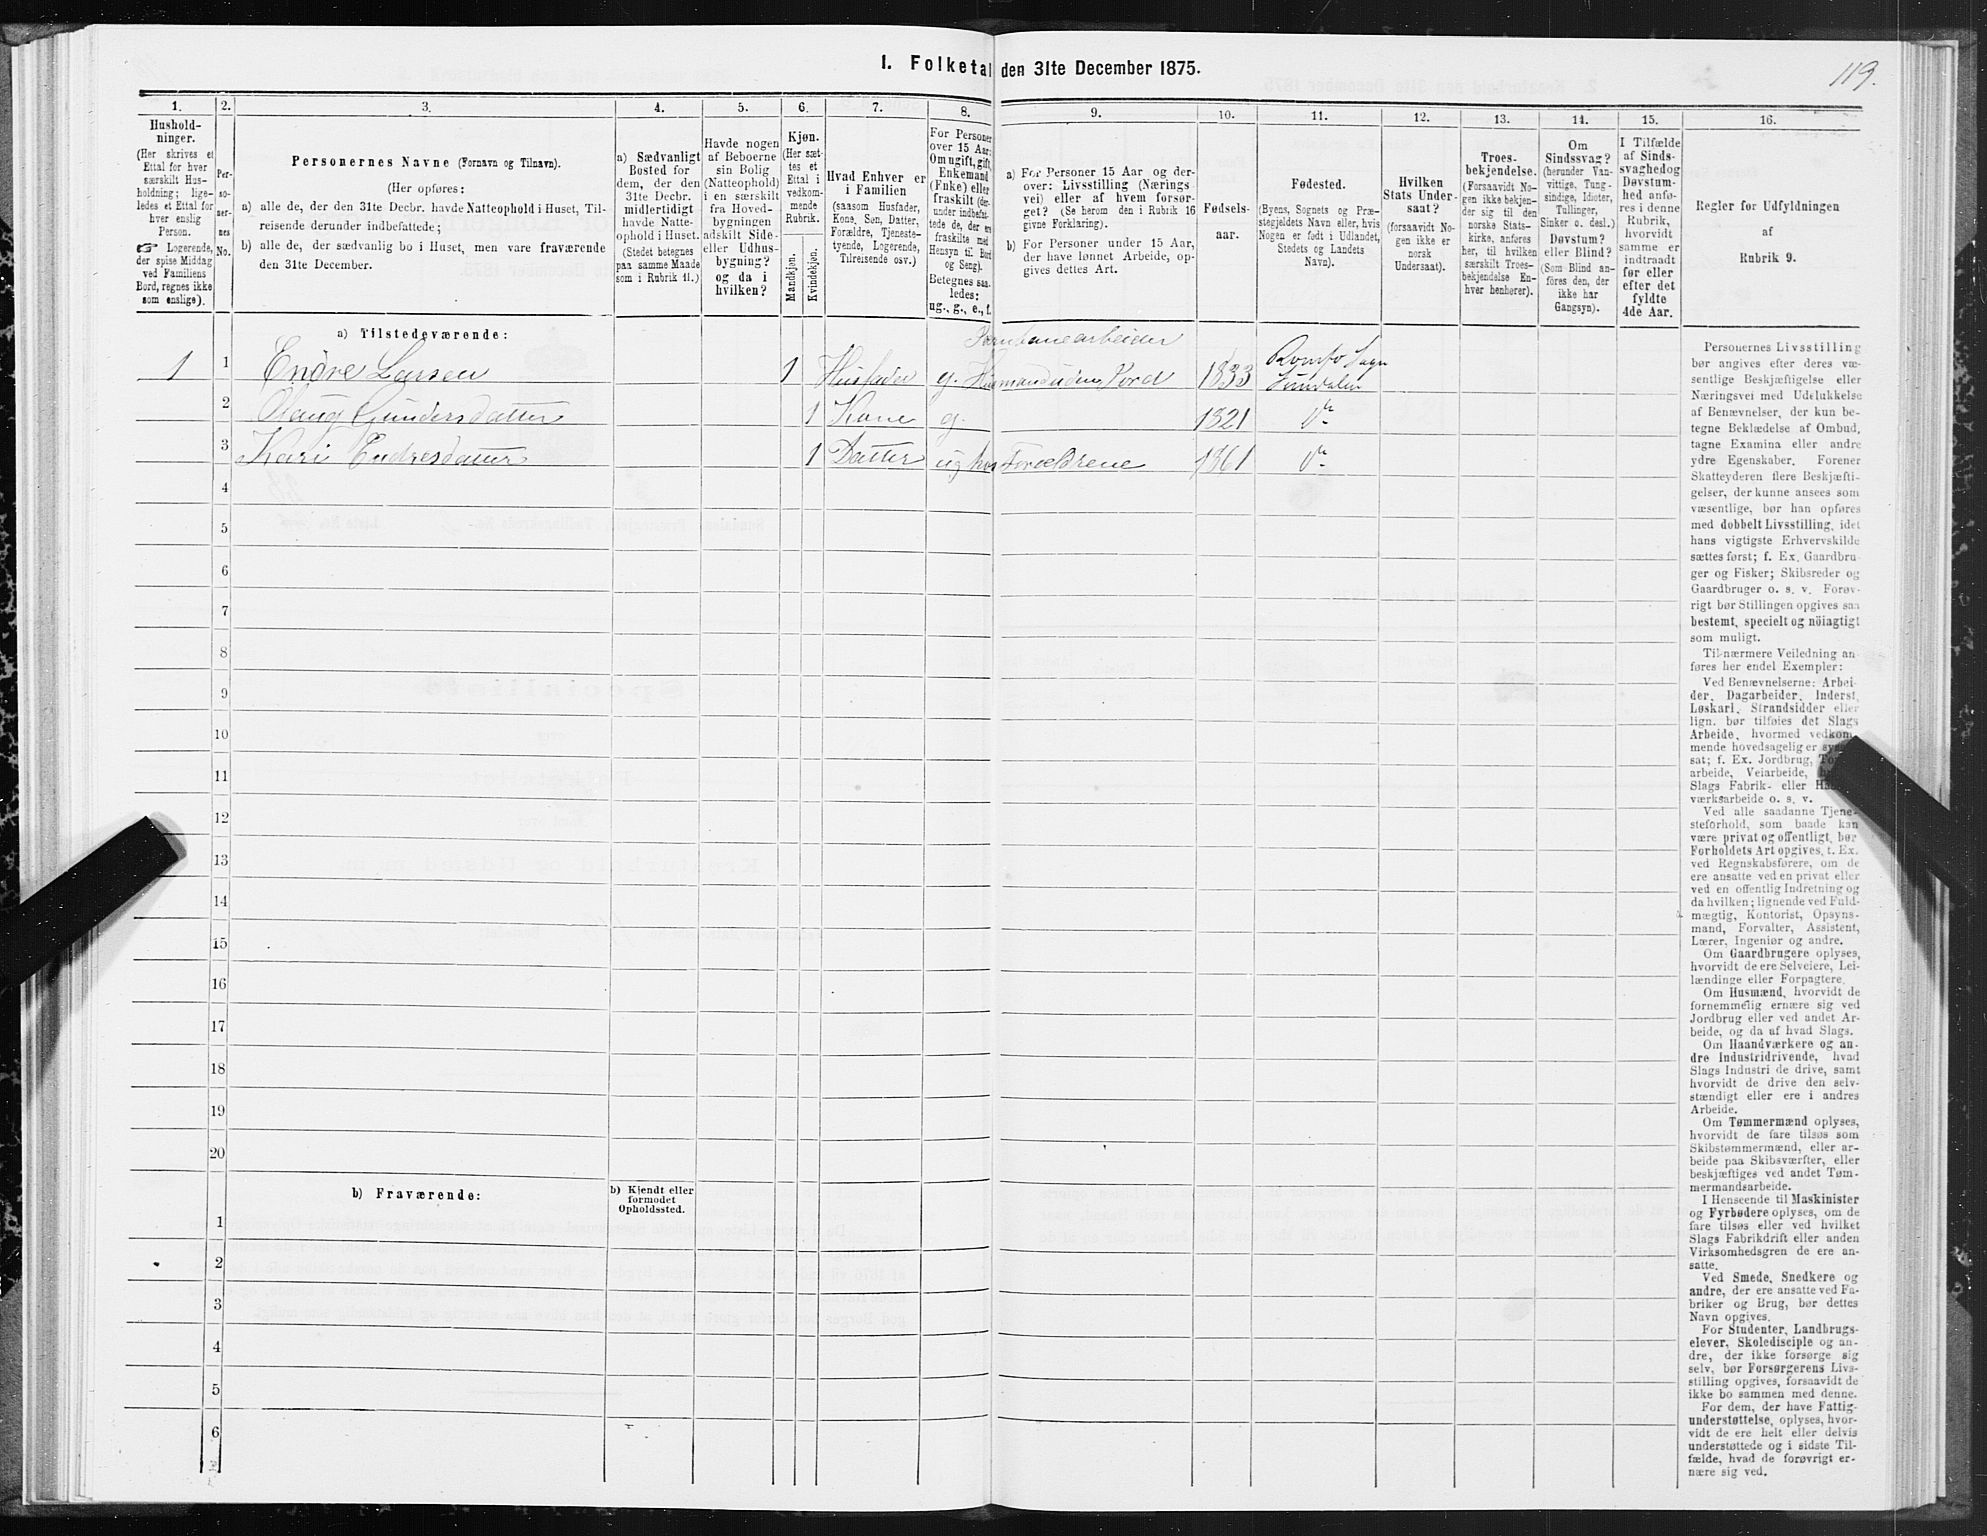 1. Folketal den 31te December 1875.
119.
1.
2.
3.
4.
5.
6.
7.
8.
9.
10.
11.
12.
13.
14.
15.
16.
Hushold-
ninger.
(Her skrives et
Ettal for hver
særskilt Hus-
holdning; lige-
ledes et Ettal for
hver enslig
Person.
☞ Logerende,
der spise Middag
ved Familiens
Bord, regnes ikke
som enslige).
Per-
so-
ner-
nes
No.
Personernes Navne (Fornavn og Tilnavn).
(Her opføres:
a) alle de, der den 31te Decbr. havde Natteophold i Huset, Til-
reisende derunder indbefattede;
b) alle de, der sædvanlig bo i Huset, men vare fraværende
den 31te December.
a) Sædvanligt
Bosted for
dem, der den
31te Decbr.
midlertidigt
havde Natte-
ophold i Huset.
(Stedet betegnes
paa samme Maade
som i Rubrik 11.)
Havde nogen
af Beboerne
sin Bolig
(Natteophold)
i en særskilt
fra Hoved-
bygningen
adskilt Side-
eller Udhus-
bygning?
og da i
hvilken?
Kjøn.
(Her sæt-
tes et
Ettal i
vedkom-
mende
Rubrik.
Mandkjøn.
Kvindekjøn.
Hvad Enhver er
i Familien
(saasom Husfader,
Kone, Søn, Datter,
Forældre, Tjeneste-
tyende, Logerende,
Tilreisende osv.)
For Personer
over 15 Aar:
Om ugift, gift,
Enkemand
(Enke) eller
fraskilt (der-
under indbefat-
tede de, der ere
fraskilte med
Hensyn til Bord
og Seng).
Betegnes saa-
ledes:
ug., g., e., f.
a) For Personer 15 Aar og der-
over: Livsstilling (Nærings-
vei) eller af hvem forsør-
get? (Se herom den i Rubrik 16
givne Forklaring).
b) For Personer under 15 Aar,
der have lønnet Arbeide, op-
gives dettes Art.
Fødsels-
aar.
Fødested.
(Byens, Sognets og Præ-
stegjeldets Navn eller, hvis
Nogen er født i Udlandet,
Stedets og Landets
Navn).
Hvilken
Stats Under-
saat?
(forsaavidt No-
gen ikke er
norsk
Undersaat).
Troes-
bekjendelse.
(Forsaavidt No-
gen ikke bekjen-
der sig til den
norske Stats-
kirke, anføres
her, til hvilken
særskilt Troes-
bekjendelse En-
hver henhører).
Om
Sindssvag?
(herunder Van-
vittige, Tung-
sindige, Idioter,
Tullinger,
Sinker o. desl.)
Døvstum?
eller Blind?
(Som Blind an-
føres den, der
ikke har
Gangsyn).
I Tilfælde
af Sinds-
svaghed og
Døvstum-
hed anfø-
res i denne
Rubrik,
hvorvidt
samme er
indtraadt
før eller
efter det
fyldte
4de Aar.
Regler for Udfyldningen
af
Rubrik 9.
a) Tilstedeværende:
Jernbanearbeider
1 1 Endre Larsen 1 Husfader g. Husmand uden Jord 1833 Romfo Sogn
Sundalen
2 Olaug Gundersdatter 1 Kone g. 1821 do
3 Kari Endresdatter 1 Datter ug hos Forældrene 1861 do
4
5
6
7
8
9
10
11
12
13
14
15
16
17
18
19
20
b) Fraværende:
b) Kjendt eller
formodet
Opholdssted.
1
2
3
4
5
6
Personernes Livsstilling
bør angives efter deres væ-
sentlige Beskjæftigelse eller
Næringsvei med Udelukkelse
af Benævnelser, der kun be-
tegne Beklædelse af Ombud,
tagne Examina eller andre
ydre Egenskaber. Forener
Skatteyderen flere Beskjæfti-
gelser, der kunne ansees som
væsentlige, bør han opføres
med dobbelt Livsstilling, idet
hans vigtigste Erhvervskilde
sættes først; f. Ex. Gaardbru-
ger og Fisker; Skibsreder og
Gaardbruger o. s. v. Forøv-
rigt bør Stillingen opgives saa
bestemt, specielt og nöiagtigt
som muligt.
Til nærmere Veiledning an-
føres her endel Exempler:
Ved Benævnelserne: Arbei-
der, Dagarbeider, Inderst,
Løskarl, Strandsidder eller
lign. bør tilføies det Slags
Arbeide, hvormed vedkom-
mende hovedsagelig er syssel-
sat; f. Ex. Jordbrug,
arbeide, Veiarbeide,
Slags Fabrik- eller Haand-
værksarbeide o. s. v.
Ved alle saadanne Tjene-
steforhold, som baade kan
være privat og offentligt, bør
Forholdets Art opgives, f. Ex.
ved Regnskabsførere, om de
ere ansatte ved en privat eller
ved en offentlig Indretning og
da hvilken; lignende ved Fuld-
mægtig, Kontorist, Opsyns-
mand, Forvalter, Assistent,
Lærer, Ingeniør og andre.
Om Gaardbrugere oplyses,
hvorvidt de ere Selveiere, Lei-
lændinge eller Forpagtere.
Om Husmænd, hvorvidt de
fornemmelig ernære sig ved
Jordbrug eller ved andet Ar-
beide, og da af hvad Slags.
Om Haandværkere og an-
dre Industridrivende, hvad
Slags Industri de drive, samt
hvorvidt de drive den selv-
stændigt eller ere i andres
Arbeide.
Om Tømmermænd oplyses,
hvorvidt de fare tilsøs som
Skibstømmermænd, eller ar-
beide paa Skibsværfter, eller
beskjæftiges ved andet Tøm-
mermandsarbeide.
I Henseende til Maskinister
og Fyrbødere oplyses, om de
fare tilsøs eller ved hvilket
Slags Fabrikdrift eller anden
Virksomhedsgren de ere an-
satte.
Ved Smede, Snedkere og
andre, der ere ansatte ved Fa-
briker og Brug, bør dettes
Navn opgives.
For Studenter, Landbrugs-
elever, Skoledisciple og an-
dre, der ikke forsørge sig
selv, bør Forsørgerens Livs-
stilling opgives, forsaavidt de
ikke bo sammen med denne.
For dem, der have Fattig-
understøttelse, oplyses, hvor-
vidt de ere helt eller delvis
understøttede og i sidste Til-
fælde, hvad de forøvrigt er-
nære sig ved.